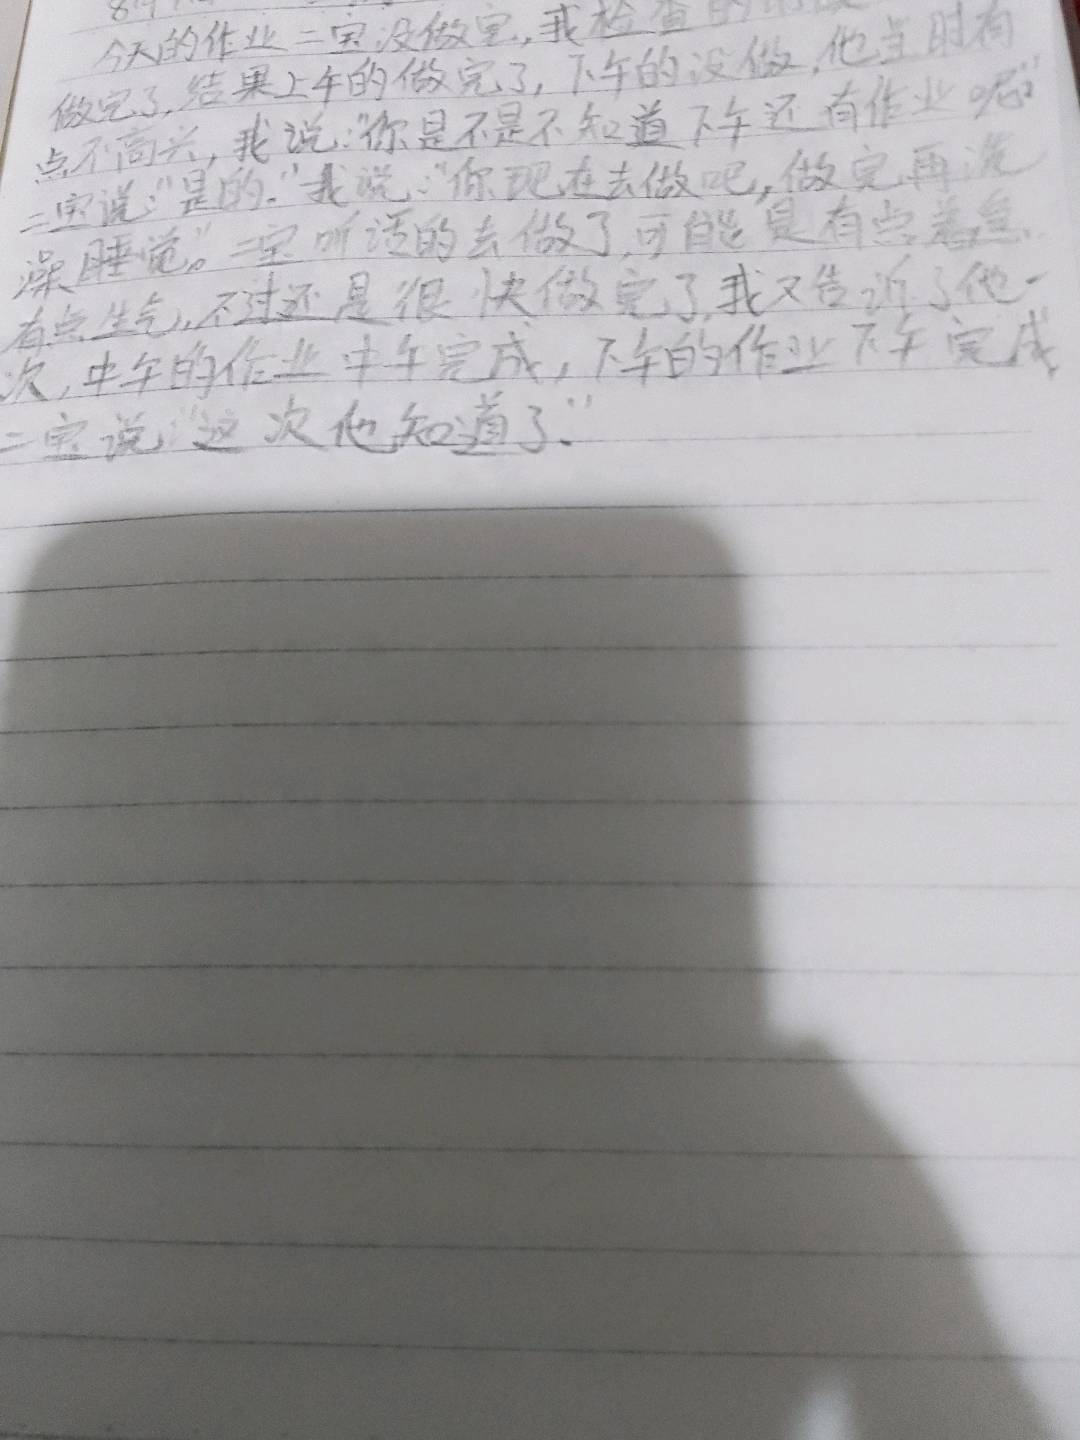 今天的作业二宝没做完,我检查的
做完了,结果上午的做完了,下午的没做,他当时有
点不高兴,我说:"你是不是不知道下午还有作业呢?"
二宝说:"是的."我说:"你现在去做吧,做完再洗
澡睡觉。"二宝听话的去做了,可能是有点着急,
有点生气,不过还是很快做完了,我又告诉了他一
次,中午的作业中午完成,下午的作业下午完成
二宝说"这次他知道了."